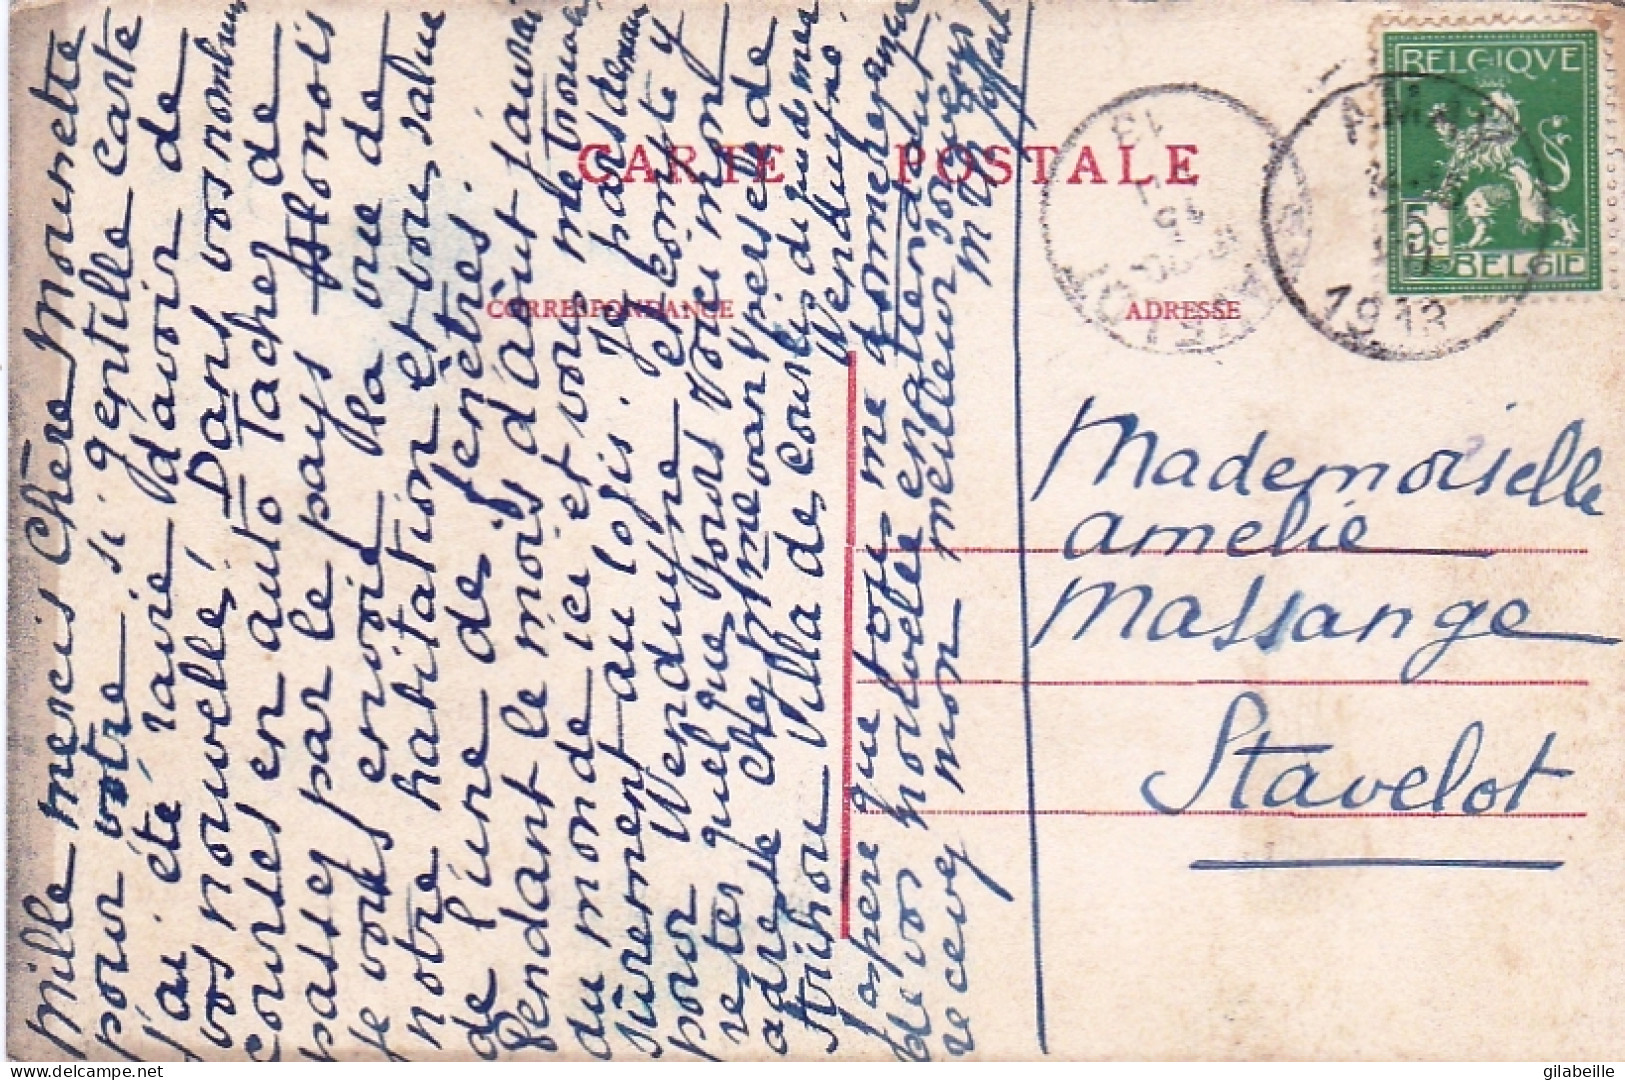 Mille mercis Chère Mounette
pour votre si gentille carte
j'ai été ravie d'avoir de
vos nouvelles! Dans vos nombreuses
courses en auto Tachez de
passez par le pays
je vous envoie la vue de
notre habitation et vous salue
de l'une de fenêtres.
Pendant le mois d'août j'aurai
du monde ici et vous me trouverez
sûrement au logis. Je pars demain
pour Wenduyne et compte y
rester quelque jours Voici mon
adresse chez
Villa de
Wenduyne
J'espère que vous me donnerez
de vos nouvelle en attendant
recevez mon meilleur souvenir
CARTE POSTALE
CORRESPONDANCE
ADRESSE
BELGIQVE
5c
BELGIE
1913
Mademoiselle
Amelie
Massange
Stavelot
delcampe.net
gilabeille